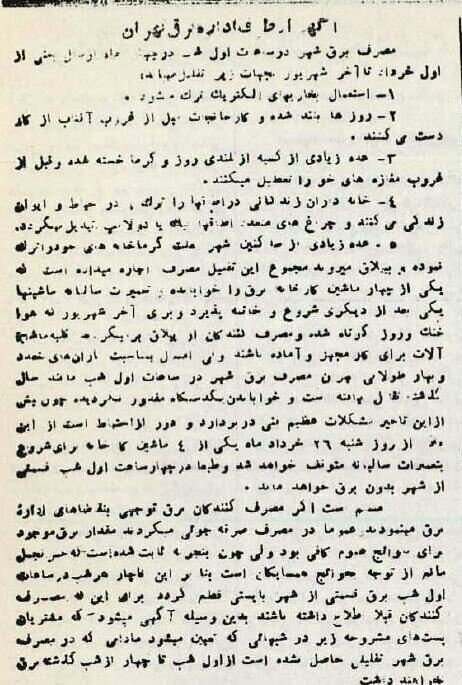 آگهی از طرف اداره برق تهران
مصرف برق شهر در ساعات اول شب در چهار ماه از سال یعنی از
اول خرداد تا آخر شهریور بجهات زیر تقلیل مییابد:
۱- استعمال بخاریهای الکتریک ترک میشود.
۲- روز ها بلند شده و کارخانجات قبل از غروب آفتاب از کار
دست می کشند.
۳- عده زیادی از کسبه از بلندی روز و گرما خسته شده و قبل از
غروب مغازه های خود را تعطیل میکنند.
۴- خانه داران زندگانی در اطاقها را ترک و در حیاط و ایوان
زندگی می کنند و چراغ های متعدد اطاقها بیک یا دو لامپ تبدیل میگردد.
۵- عده زیادی از ساکنین شهر بعلت گرما خانه های خود را ترک
نموده و به ییلاق میروند مجموع این تقلیل مصرف اجازه میداده است که
یکی از چهار ماشین کارخانه برق را خوابانده و تعمیرت سالیانه ماشینها
یکی بعد از دیگری شروع و خاتمه پذیرد و برای آخر شهریور که هوا
خنک و روز کوتاه شده و مصرف کنندگان از ییلاق بر میگردند کلیه ماشین
آلات برای کار مجهز و آماده باشند ولی امسال بمناسبت بارانهای ممتد
و بهار طولانی تهران مصرف برق شهر در ساعات اول شب مانند سال
گذشته تقلیل نیافته است و خواباندن یکدستگاه مقدور نگردیده چون بیش
از این تاخیر مشکلات عظیم فنی در بر دارد و دور از احتیاط است از این
از روز شنبه ۲۶ خرداد ماه یکی از ۴ ماشین کارخانه برای شروع
بتعمیرات سالیانه متوقف خواهد شد و طبعا در چهار ساعت اول شب قسمتی
از شهر بدون برق خواهد ماند.
مسلم است اگر مصرف کنندگان برق توجهی بتقاضاهای اداره
برق مینمودند و عموما در مصرف صرفه جوئی میکردند مقدار برق موجود
برای حوائج عموم کافی بود ولی چون بتجربه ثابت شده است که حس تجمل
مانع از توجه حوائج همسایگان است بنا بر این ناچار هر شب در ساعات
اول شب برق قسمتی از شهر بایستی قطع گردد برای این که مصرف
کنندگان قبلا اطلاع داشته باشند بدین وسیله آگهی میشود که مشتریان
پست‌های مشروحه زیر در شبهائی که تعیین میشود مادامی که در مصرف
برق شهر تقلیلی حاصل نشده است از اول شب تا چهار از شب گذشته برق
نخواهند داشت